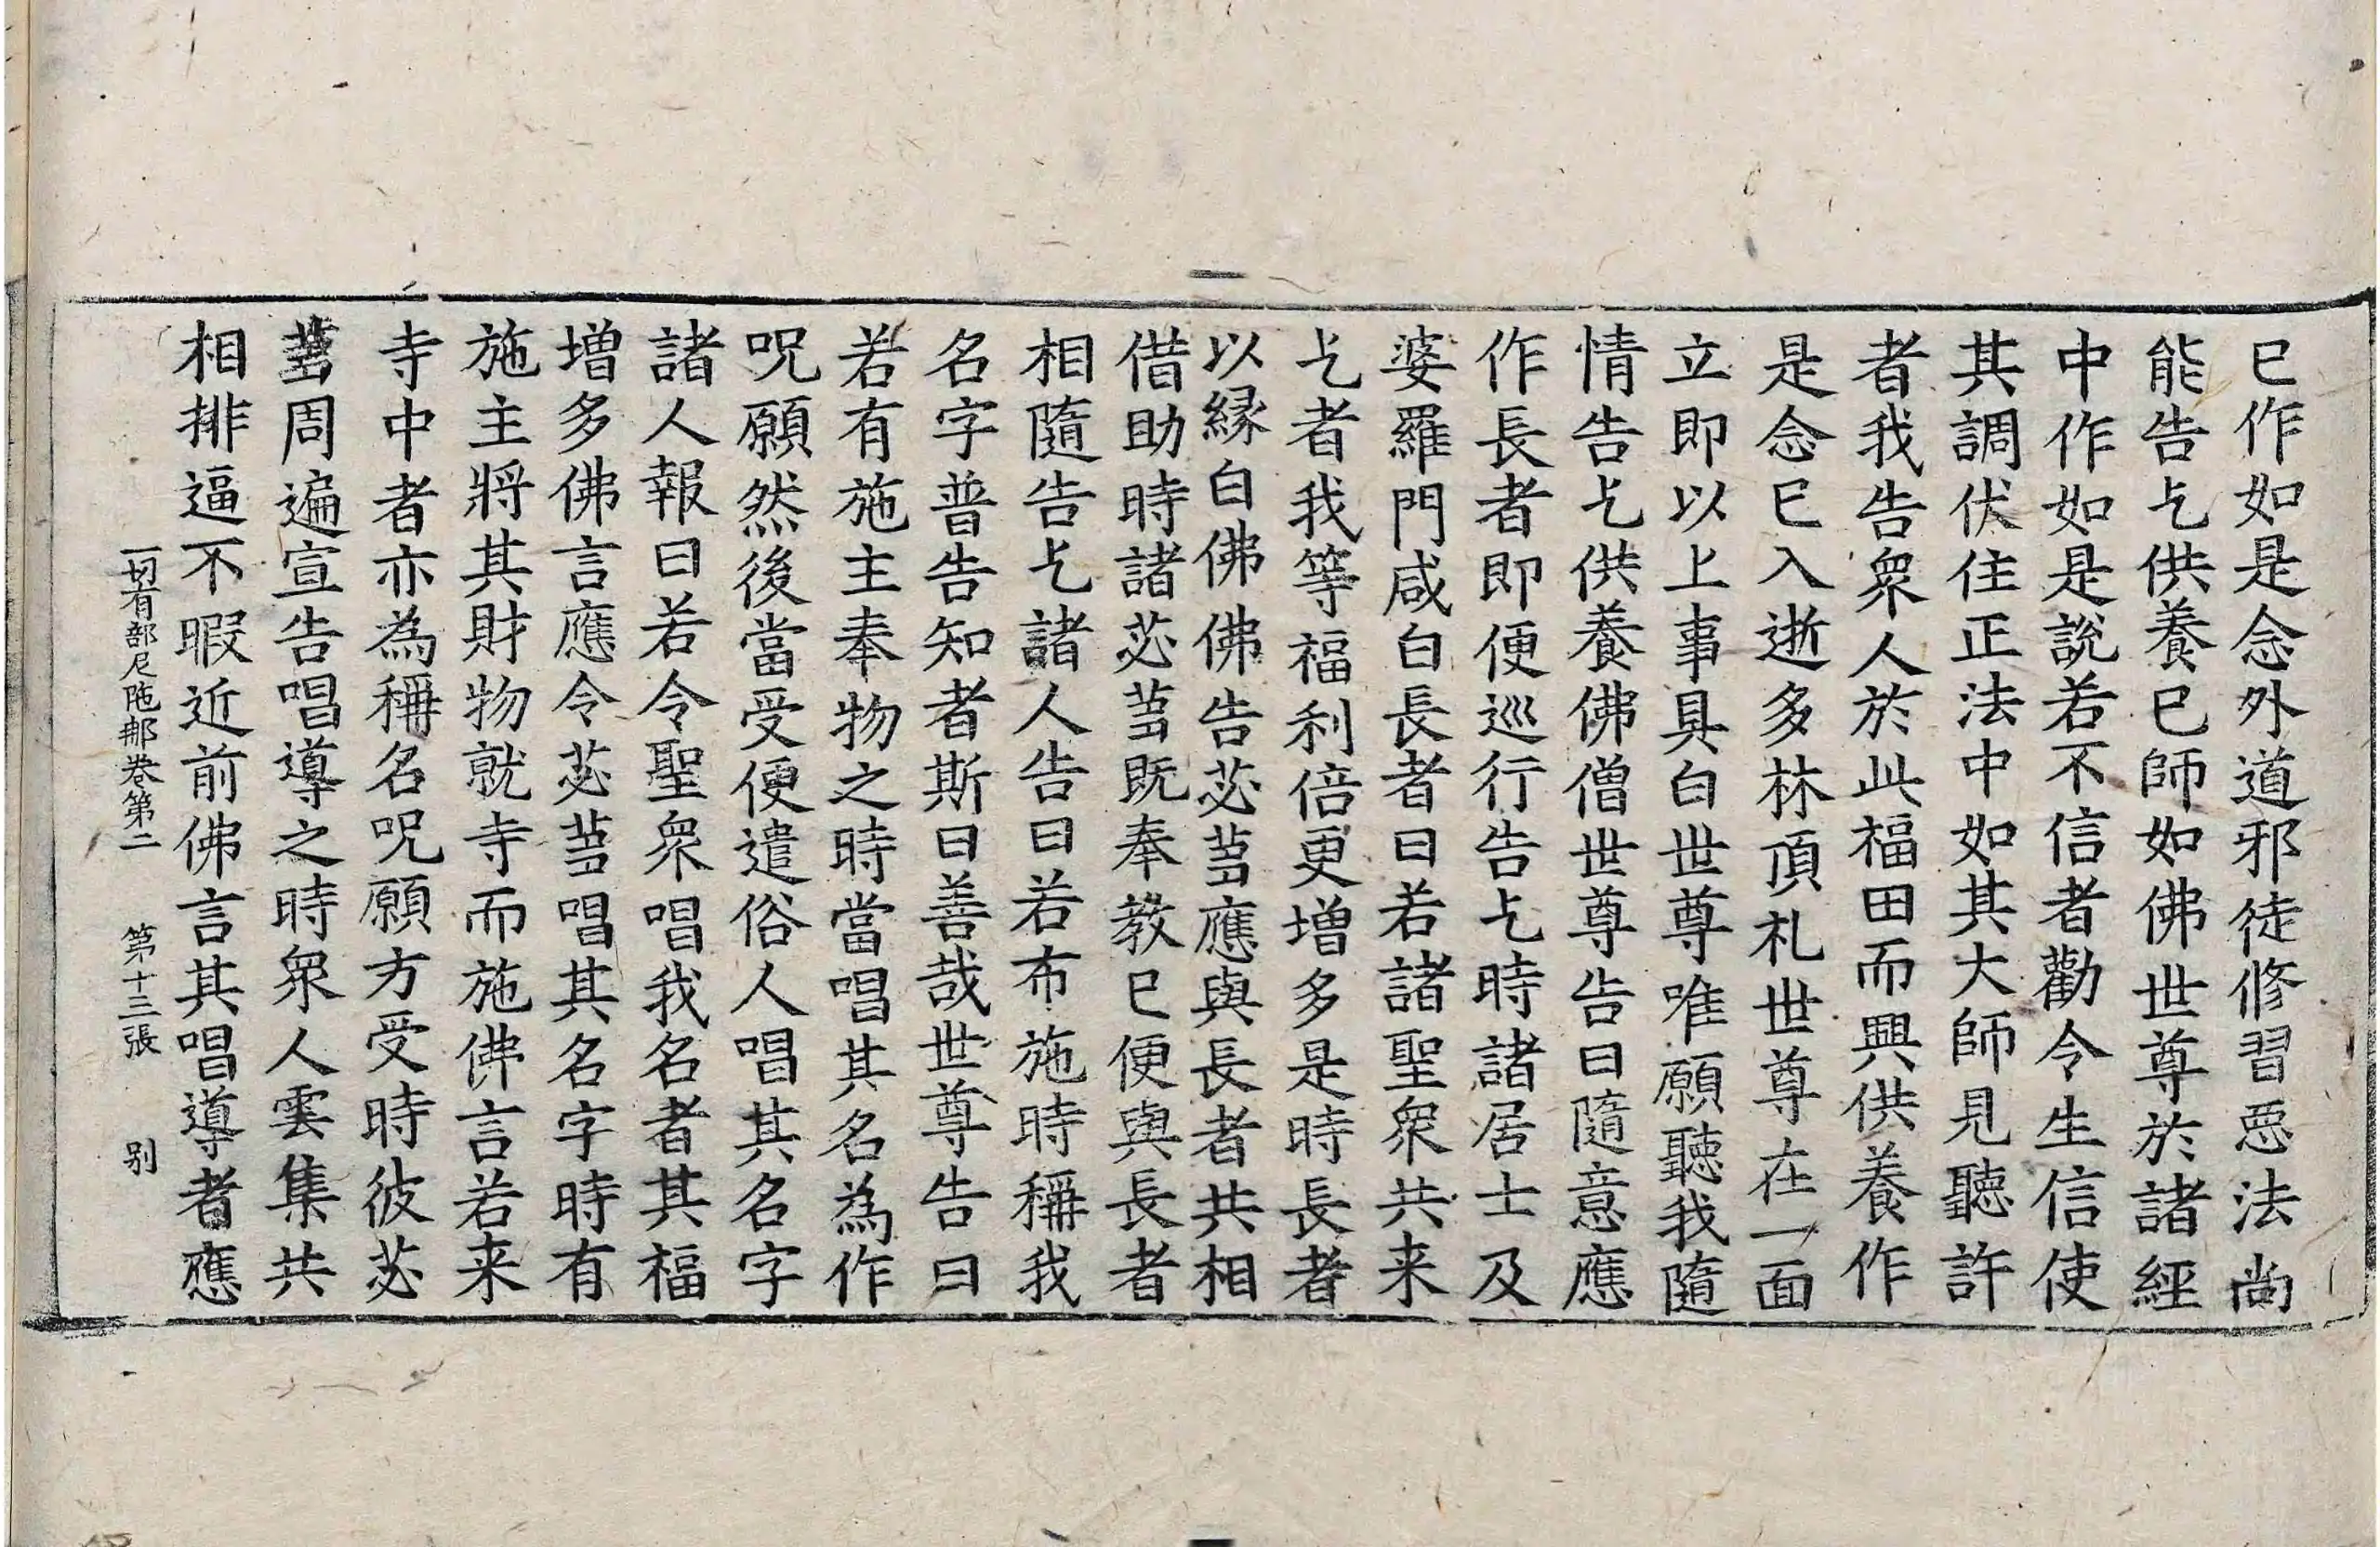 已作如是念外道邪徒修習惡法尚
能告乞供養已師如佛世尊於諸經
中作如是說若不信者勸令生信使
其調伏住正法中如其大師見聽許
者我告衆人於此福田而興供養作
是念已入逝多林頂礼世尊在一面
立即以上事具白世尊唯願聽我隨
情告乞供養佛僧世尊告曰隨意應
作長者即便巡行告乞時諸居士及
婆羅門咸白長者曰若諸聖衆共来
乞者我等福利倍更增多是時長者
以緣白佛佛告苾芻應與長者共相
借助時諸苾芻既奉教已便與長者
相隨告乞諸人告曰若布施時稱我
名字普告知者斯曰善哉世尊告曰
若有施主奉物之時當唱其名為作
呪願然後當受便遣俗人唱其名字
諸人報曰若令聖衆唱我名者其福
增多佛言應令苾芻唱其名字時有
施主將其財物就寺而施佛言若来
寺中者亦為稱名呪願方受時彼苾
芻周遍宣告唱導之時衆人雲集共
相排逼不暇近前佛言其唱導者應
一切有部尼陁那卷第二　第十三張　别